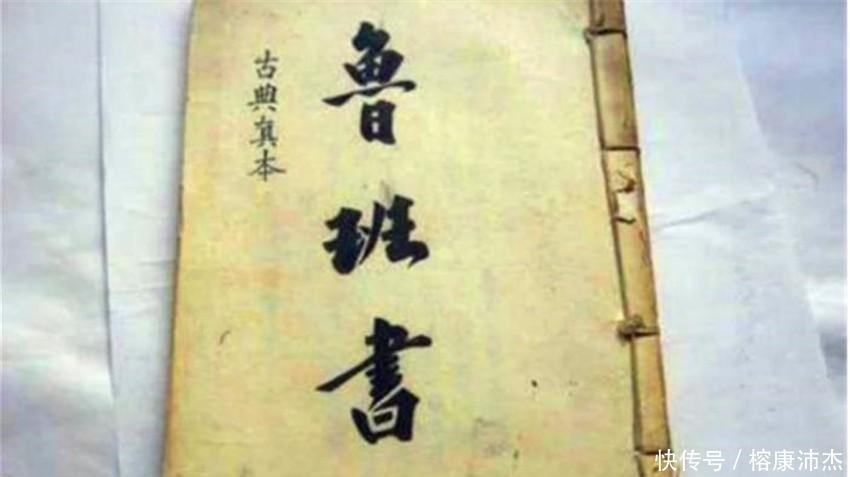 魯班書
古典真本
快传号/榕康沛杰